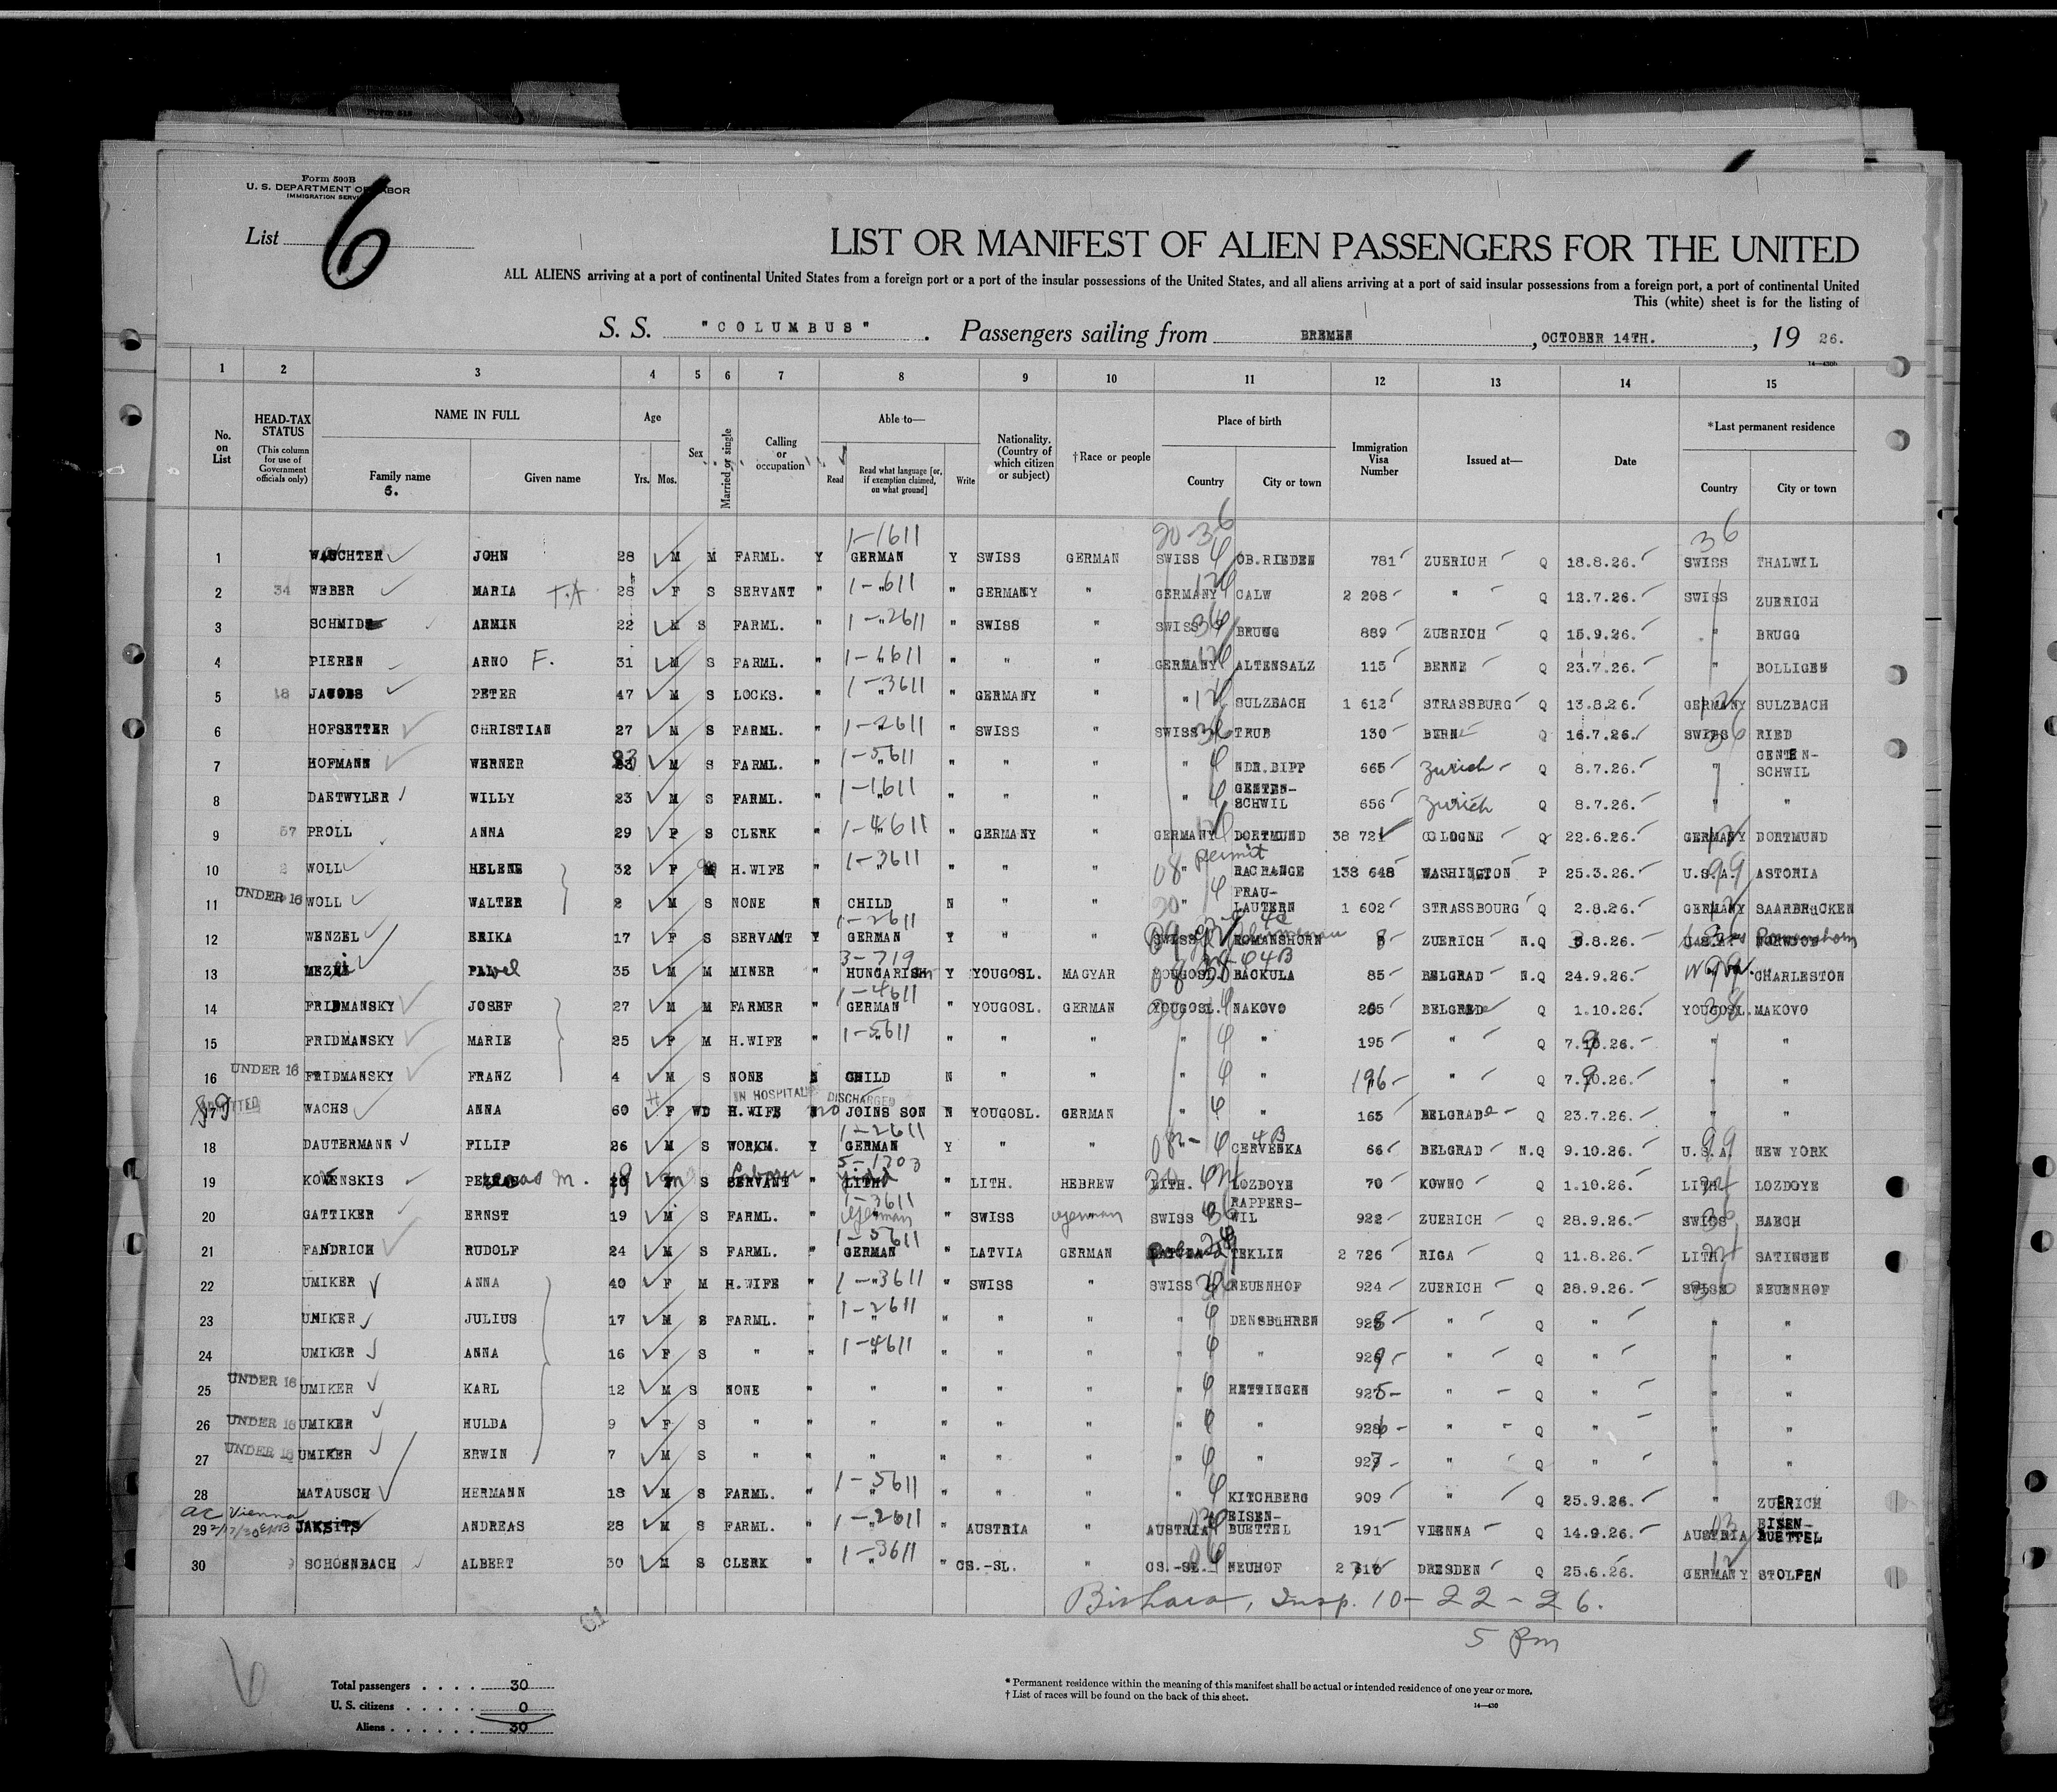 Form 500B
U. S. DEPARTMENT OF LABOR
IMMIGRATION SERVICE
List 6
LIST OR MANIFEST OF ALIEN PASSENGERS FOR THE UNITED
ALL ALIENS arriving at a port of continental United States from a foreign port or a port of the insular possessions of the United States, and all aliens arriving at a port of said insular possessions from a foreign port, a port of continental United
This (white) sheet is for the listing of
S. S. "COLUMBUS" . Passengers sailing from BREMEN , OCTOBER 14TH. , 19 26.
14—430b
1 2 3 4 5 6 7 8 9 10 11 12 13 14 15
No. on List
HEAD-TAX STATUS
(This column for use of Government officials only)
NAME IN FULL
Family name
6.
Given name
Age
Yrs. Mos.
Sex
Married or single
Calling or occupation
Able to—
Read
Read what language [or, if exemption claimed, on what ground]
Write
Nationality. (Country of which citizen or subject)
†Race or people
Place of birth
Country
City or town
Immigration Visa Number
Issued at—
Date
*Last permanent residence
Country
City or town
1-1611 20-36 36
1 WAECHTER JOHN 28 M M FARML. Y GERMAN Y SWISS GERMAN SWISS OB.RIEDEN 781 ZUERICH Q 18.8.26. SWISS THALWIL
2 34 WEBER MARIA T.A 28 F S SERVANT " 1-"611 " GERMANY " GERMANY CALW 2 208 " Q 12.7.26. SWISS ZUERICH
3 SCHMID ARMIN 22 M S FARML. " 1-2611 " SWISS " SWISS BRUGG 889 ZUERICH Q 15.9.26. " BRUGG
4 PIEREN ARNO F. 31 M S FARML. " 1-4611 " " " GERMANY ALTENSALZ 115 BERNE Q 23.7.26. " BOLLIGEN
5 18 JACOBS PETER 47 M S LOCKS. " 1-3611 " GERMANY " " SULZBACH 1 612 STRASSBURG Q 13.8.26. GERMANY SULZBACH
6 HOFSETTER CHRISTIAN 27 M S FARML. " 1-2611 " SWISS " SWISS TRUB 130 BERN Q 16.7.26. SWISS RIED
7 HOFMANN WERNER 23 M S FARML. " 1-5611 " " " " NDR.BIPP 665 Zurich Q 8.7.26. " GENTEN-SCHWIL
8 DAETWYLER WILLY 23 M S FARML. " 1-1611 " " " " GENTEN-SCHWIL 656 Zurich Q 8.7.26. " "
9 57 PROLL ANNA 29 F S CLERK " 1-4611 " GERMANY " GERMANY DORTMUND 38 721 COLOGNE Q 22.6.26. GERMANY DORTMUND
permit
10 2 WOLL HELENE 32 F M H.WIFE " 1-3611 " " " 08 " RACRANGE 138 648 WASHINGTON P 25.3.26. U.S.A. 99 ASTORIA
11 UNDER 16 WOLL WALTER 2 M S NONE N CHILD N " " " FRAU-LAUTERN 1 602 STRASSBOURG Q 2.8.26. GERMANY SAARBRUCKEN
1-2611
12 WENZEL ERIKA 17 F S SERVANT Y GERMAN Y " " SWISS ROMANSHORN 8 ZUERICH N.Q .8.26. U.S.A.
3-719
13 MEZEI PAvel 35 M M MINER " HUNGARISH Y YOUGOSL. MAGYAR YOUGOSL. BACKULA 85 BELGRAD N.Q 24.9.26. CHARLESTON
1-4611
14 FRIDMANSKY JOSEF 27 M M FARMER " GERMAN " YOUGOSL. GERMAN YOUGOSL. NAKOVO 205 BELGRADe Q 1.10.26. YOUGOSL. MAKOVO
15 FRIDMANSKY MARIE 25 F M H.WIFE " 1-5611 " " " " " 195 " Q 7.9.26. " "
16 UNDER 16 FRIDMANSKY FRANZ 4 M S NONE N CHILD N " " " " 196 " Q 7.9.26. " "
IN HOSPITAL DISCHARGED
17 ADMITTED WACHS ANNA 60 F WD H.WIFE N no JOINS SON N YOUGOSL. GERMAN " " 165 BELGRADe Q 23.7.26. " "
1-2611
18 DAUTERMANN FILIP 26 M S WORKM. Y GERMAN Y " " CERVENKA 66 BELGRAD N.Q 9.10.26. U.S.A. 99 NEW YORK
5-1303
19 KOWENSKIS M. S SERVANT " LITH. " LITH. HEBREW LITH. LOZDOYE 70 KOWNO Q 1.10.26. LITH. LOZDOYE
1-3611
20 GATTIKER ERNST 19 M S FARML. " German " SWISS German SWISS RAPPERS-WIL 922 ZUERICH Q 28.9.26. SWISS BAECH
1-5611
21 FANDRICH RUDOLF 24 M S FARML. " GERMAN " LATVIA GERMAN TEKLIN 2 726 RIGA Q 11.8.26. LITH. SATINGEN
22 UMIKER ANNA 40 F M H.WIFE " 1-3611 " SWISS " SWISS NEUENHOF 924 ZUERICH Q 28.9.26. SWISS NEUENHOF
23 UMIKER JULIUS 17 M S FARML. " 1-2611 " " " " DENSBUHREN 928 " Q " " "
24 UMIKER ANNA 16 F S " " 1-4611 " " " " " 929 " Q " " "
25 UNDER 16 UMIKER KARL 12 M S NONE " " " " " " HETTINGEN 925 " Q " " "
26 UNDER 16 UMIKER HULDA 9 F S " " " " " " " " 926 " Q " " "
27 UNDER 16 UMIKER ERWIN 7 M S " " " " " " " " 927 " Q " " "
28 MATAUSCH HERMANN 18 M S FARML. " 1-5611 " " " " KITCHBERG 909 " Q 25.9.26. " ZUERICH
ac Vienna
29 JAKSITS ANDREAS 28 M S FARML. " 1-2611 " AUSTRIA " AUSTRIA EISEN-BUETTEL 191 VIENNA Q 14.9.26. AUSTRIA EISEN-BUETTEL
30 9 SCHOENBACH ALBERT 30 M S CLERK " 1-3611 " CS.-SL. " CS.-SL. NEUHOF DRESDEN Q 25.6.26. GERMANY STOLPEN
Bishara, Insp. 10-22-26.
5 pm
Total passengers . . . . 30
U. S. citizens . . . . . 0
Aliens . . . . . . 30
* Permanent residence within the meaning of this manifest shall be actual or intended residence of one year or more.
† List of races will be found on the back of this sheet.
14—430